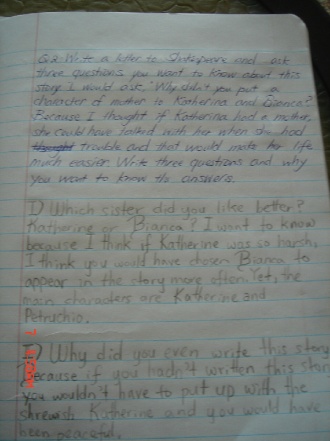 Q.2 Write a letter to Shakespeare and ask
three questions you want to know about this
story. I would ask, "Why didn't you put a
character of mother to Katherina and Bianca?
Because I thought if Katherina had a mother,
she could have talked with her when she had
thought trouble and that would make her life
much easier. Write three questions and why
you want to know the answers.
1) Which sister did you like better?
Katherine or Bianca? I want to know
because I think if Katherine was so harsh,
I think you would have chosen Bianca to
appear in the story more often. Yet, the
main characters are Katherine and
Petruchio.
Why did you even write this story
because if you hadn't written this story
you wouldn't have to put up with the
shrewish Katherine and you would have
been peaceful.